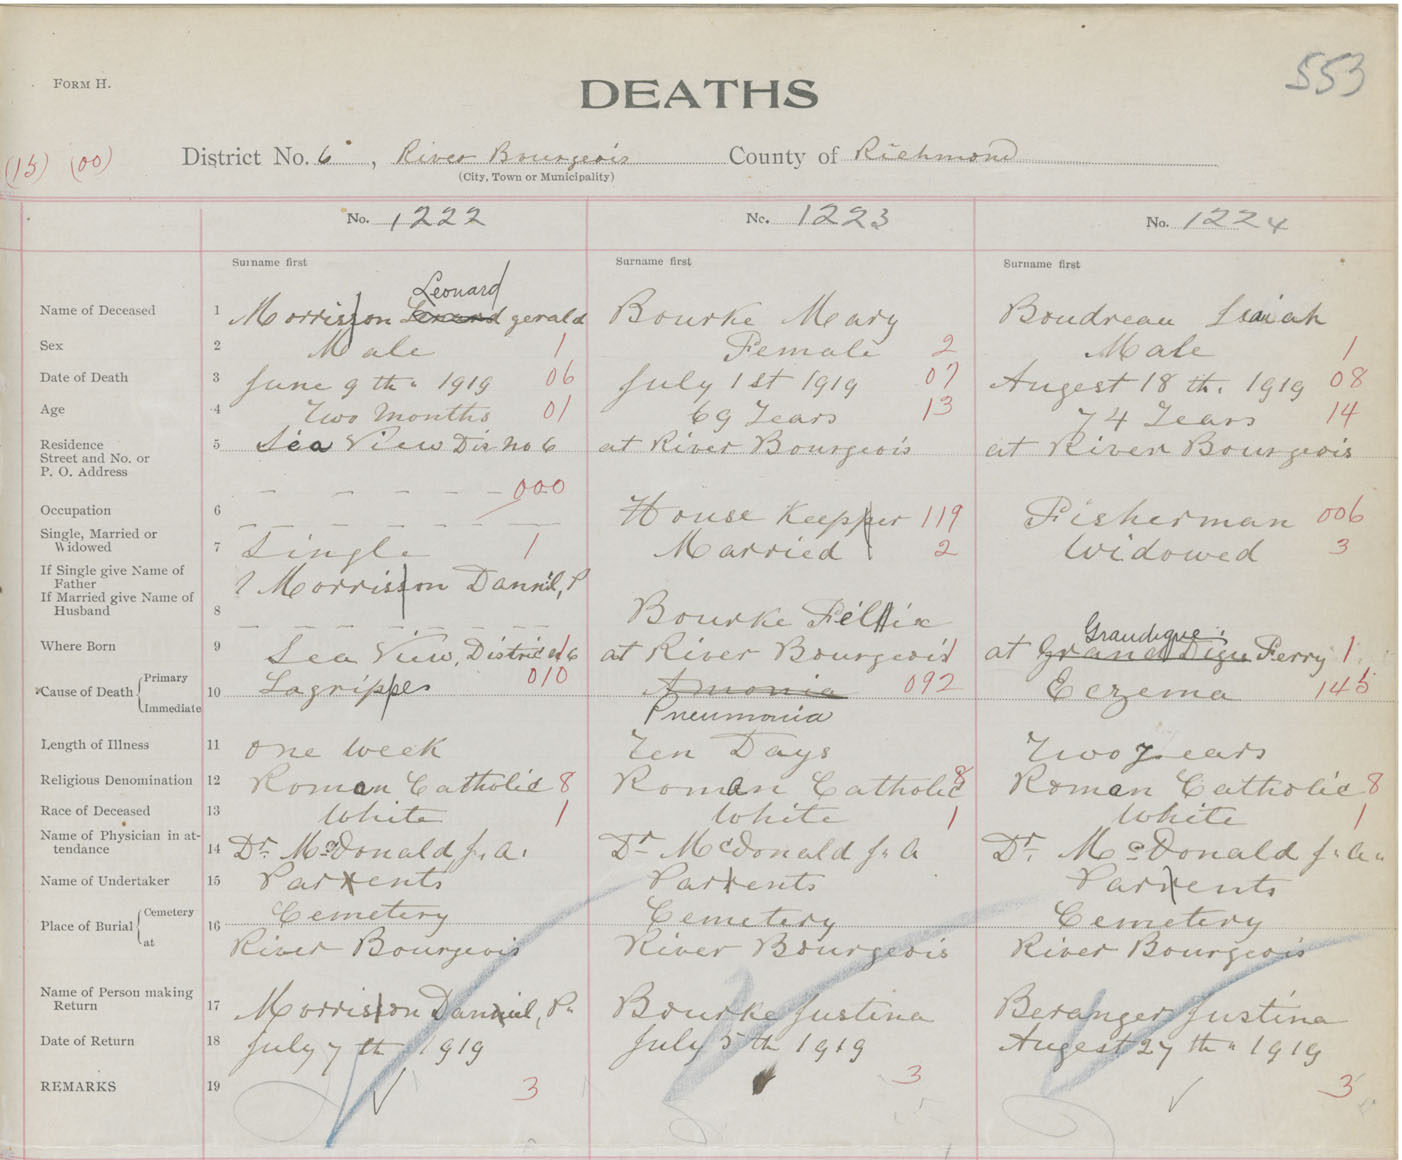 553
FORM H.
DEATHS
(15) (00)
District No. 6, River Bourgeois County of Richmond
(City, Town or Municipality)
No. 1222 No. 1223 No. 1224
Surname first Surname first Surname first
Leonard
Name of Deceased 1 Morrisson gerald Bourke Mary Boudreau Isaiah
Sex 2 Male 1 Female 2 Male 1
Date of Death 3 June 9th 1919 06 July 1st 1919 07 Augest 18th. 1919 08
Age 4 Two Months 01 69 Years 13 74 Years 14
Residence 5 Sea View Dis no 6 at River Bourgeois at River Bourgeois
Street and No. or
P. O. Address
000
Occupation 6 House Keepper 119 Fisherman 006
Single, Married or
Widowed 7 Single 1 Married 2 Widowed 3
If Single give Name of
Father Morrisson Danniel, P
If Married give Name of
Husband 8 Bourke Fellix
Grandique
Where Born 9 Sea View, District no 6 1 at River Bourgeois 1 at Grand Digue Ferry 1
Cause of Death { Primary 10 Lagrippes 010 Amonia 092 Eczema 145
Immediate Pneumonia
Length of Illness 11 one week Ten Days Two years
Religious Denomination 12 Roman Catholic 8 Roman Catholic 8 Roman Catholic 8
Race of Deceased 13 White 1 White 1 White 1
Name of Physician in at-
tendance 14 Dr. McDonald J. A. Dr McDonald J. A Dr. McDonald J. A.
Name of Undertaker 15 Parrents Parrents Parrents
Place of Burial { Cemetery 16 Cemetery Cemetery Cemetery
at River Bourgeois River Bourgeois River Bourgeois
Name of Person making
Return 17 Morrisson Danniel, P. Bourke Justina Beranger Justina
Date of Return 18 July 7th 1919 July 5th 1919 Augest 27th 1919
REMARKS 19 3 3 3